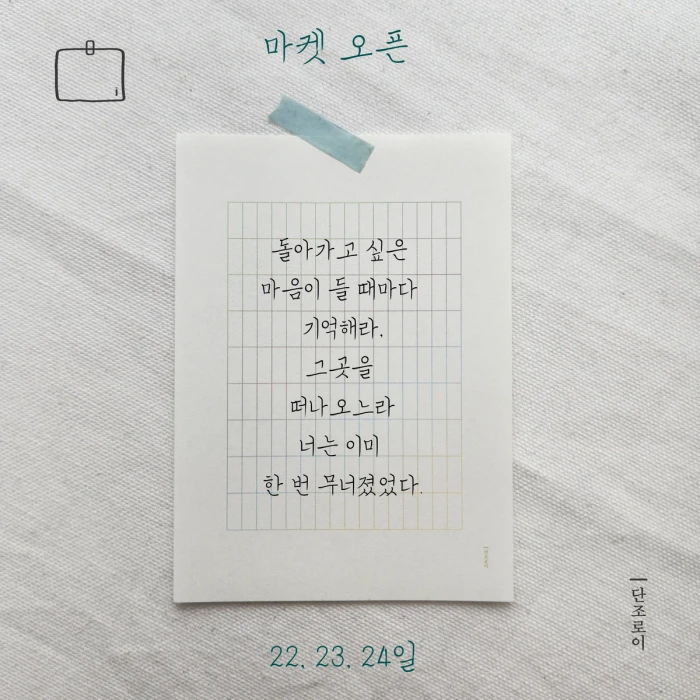 마켓 오픈
돌아가고 싶은
마음이 들 때마다
기억해라.
그곳을
떠나오느라
너는 이미
한 번 무너졌었다.
22. 23. 24일
단조로이